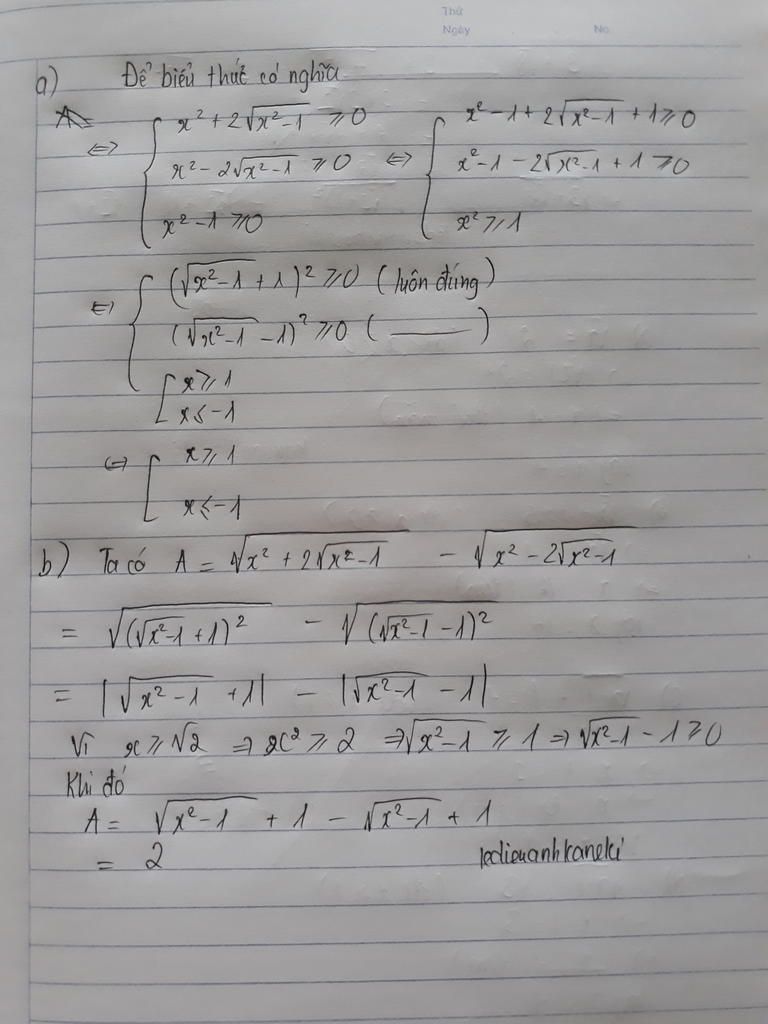 Thứ
Ngày No.
a) Để biểu thức có nghĩa
⇔ { x² + 2√(x²-1) ≥ 0 ⇔ { x² - 1 + 2√(x²-1) + 1 ≥ 0
x² - 2√(x²-1) ≥ 0 x² - 1 - 2√(x²-1) + 1 ≥ 0
x² - 1 ≥ 0 x² ≥ 1
⇔ { (√(x²-1) + 1)² ≥ 0 (luôn đúng)
(√(x²-1) - 1)² ≥ 0 ( ——— )
[ x ≥ 1
x ≤ -1
⇔ [ x ≥ 1
x ≤ -1
b) Ta có A = √(x² + 2√(x²-1)) - √(x² - 2√(x²-1))
= √((√(x²-1) + 1)²) - √((√(x²-1) - 1)²)
= |√(x²-1) + 1| - |√(x²-1) - 1|
Vì x ≥ √2 ⇒ x² ≥ 2 ⇒ √(x²-1) ≥ 1 ⇒ √(x²-1) - 1 ≥ 0
Khi đó
A = √(x²-1) + 1 - √(x²-1) + 1
= 2 ledieuanhkaneki